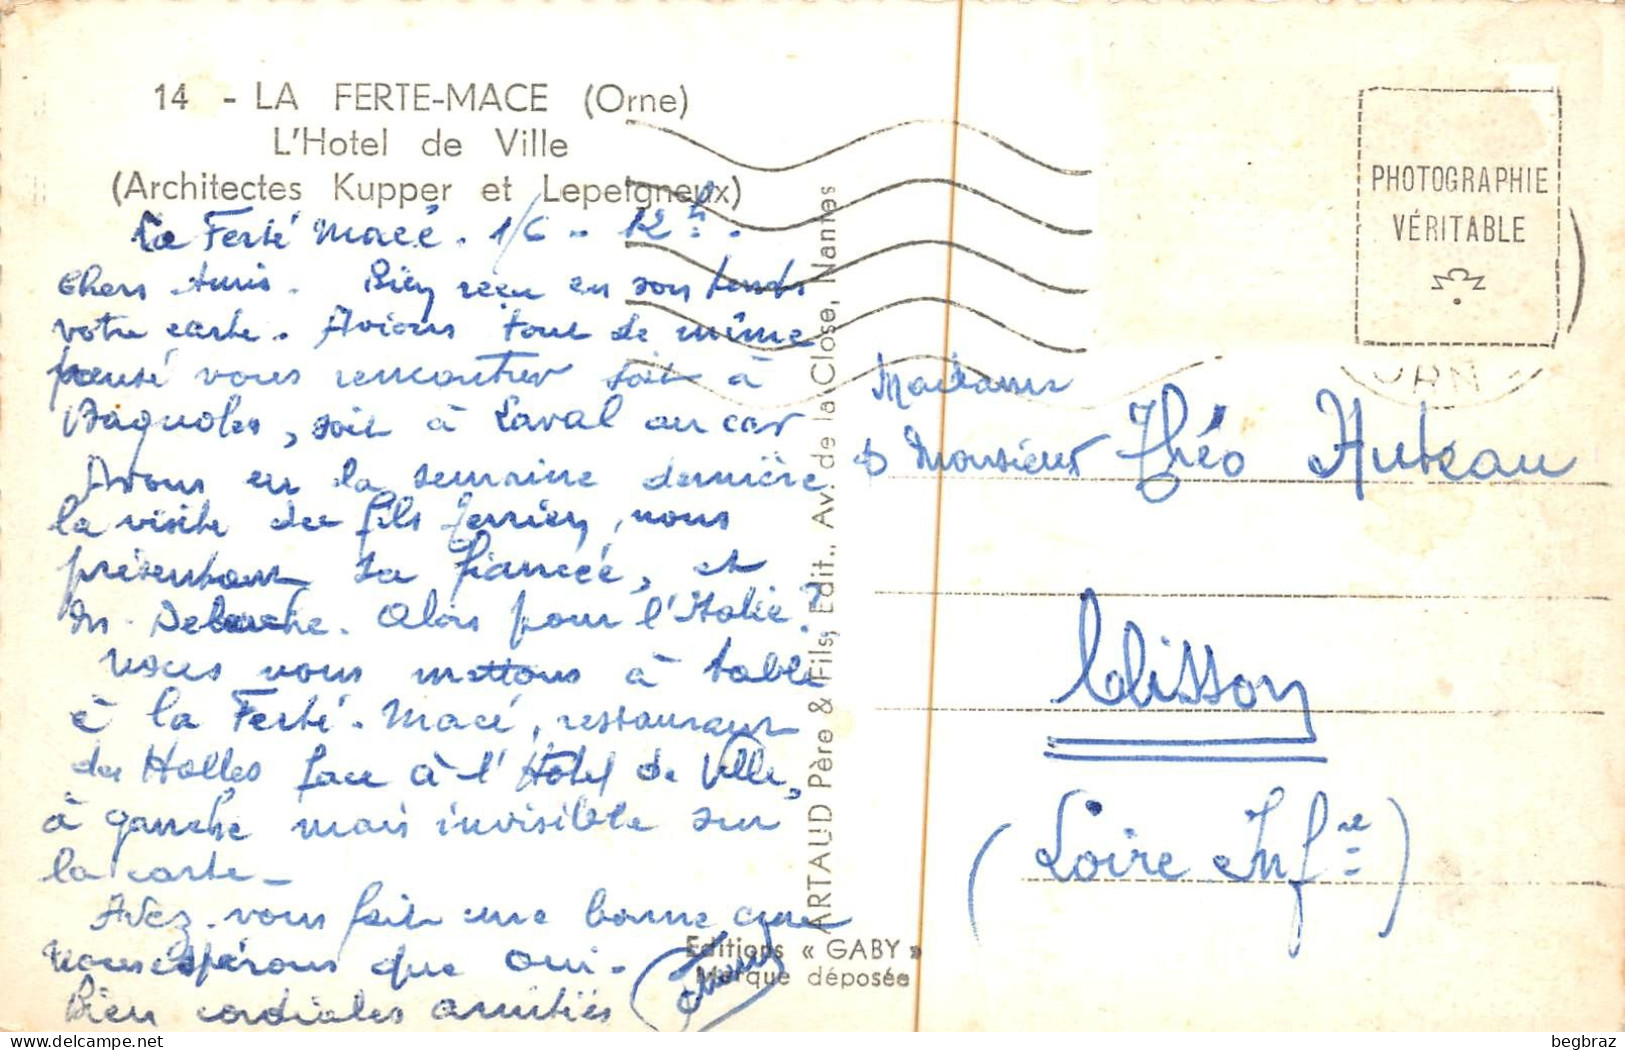 14 - LA FERTE-MACE (Orne)
L'Hotel de Ville
(Architectes Kupper et Lepeigneux)
La Ferté Macé. 1/6 - 12 h -
Chers Amis. Bien reçu en son temps
votre carte. Avions tout de même
pensé vous rencontrer soit à
Bagnoles, soit à Laval au car
Avons eu la semaine dernière
la visite des fils Terrien, nous
présentant sa fiancée, et
M. Delouche. Alors pour l'Italie?
Nous nous mettons à table
à la Ferté-Macé, restaurant
des Halles face à l'Hôtel de Ville,
à gauche mais invisible sur
la carte -
Avez-vous fait une bonne
nous espérons que oui.
Bien cordiales amitiés
ARTAUD Père & Fils, Edit., Av. de la Close, Nantes
Editions « GABY »
Marque déposée
PHOTOGRAPHIE
VÉRITABLE
ORN
Madame
& Monsieur Théo Auteau
Clisson
(Loire Inf re)
begbraz